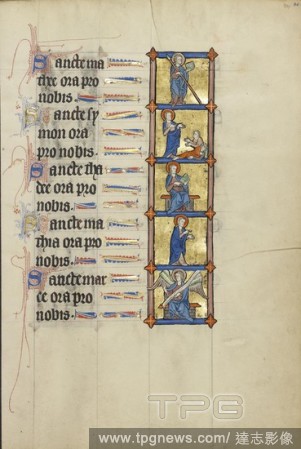 Sancte ma
thee ora pro
nobis.
Sancte sy
mon ora
pro nobis.
Sancte tha
dee ora pro
nobis.
Sancte ma
thia ora pro
nobis.
Sancte mar
ce ora pro
nobis.
TPG
www.tpgnews.com/達志影像